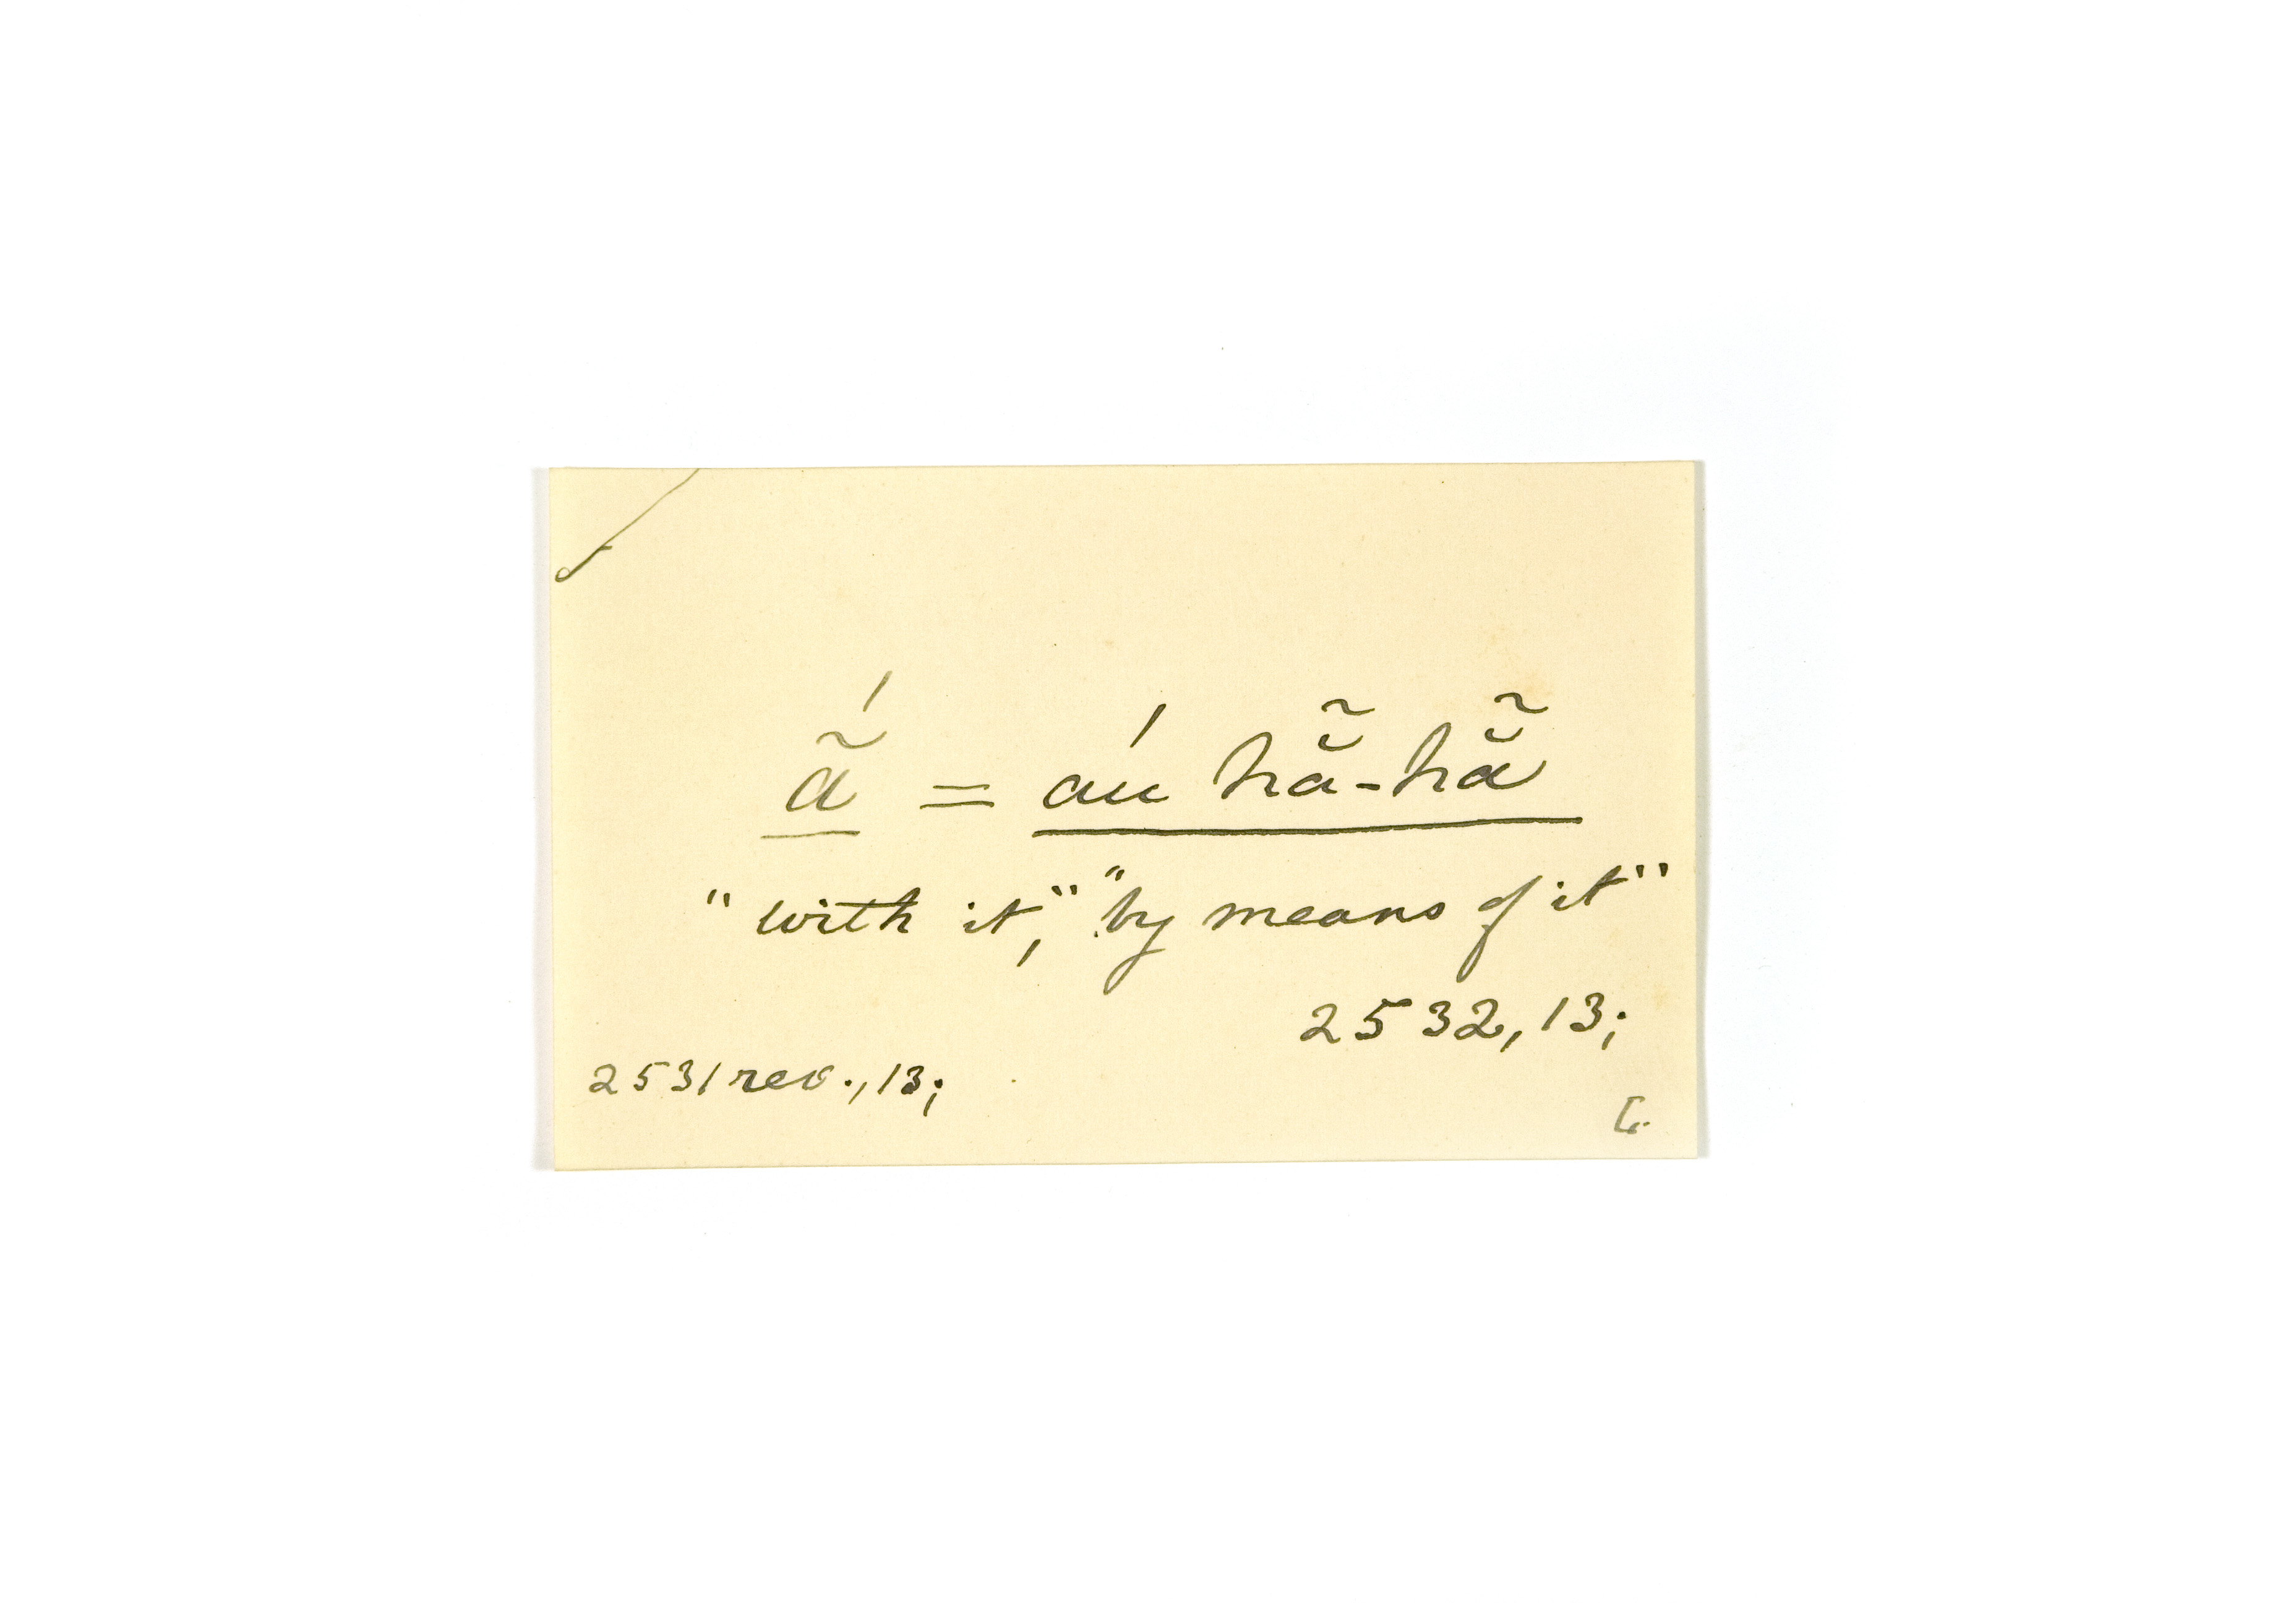 ã́ = aú hẵ-hẵ
"with it," "by means of it"
2532, 13;
2531 rev., 13;